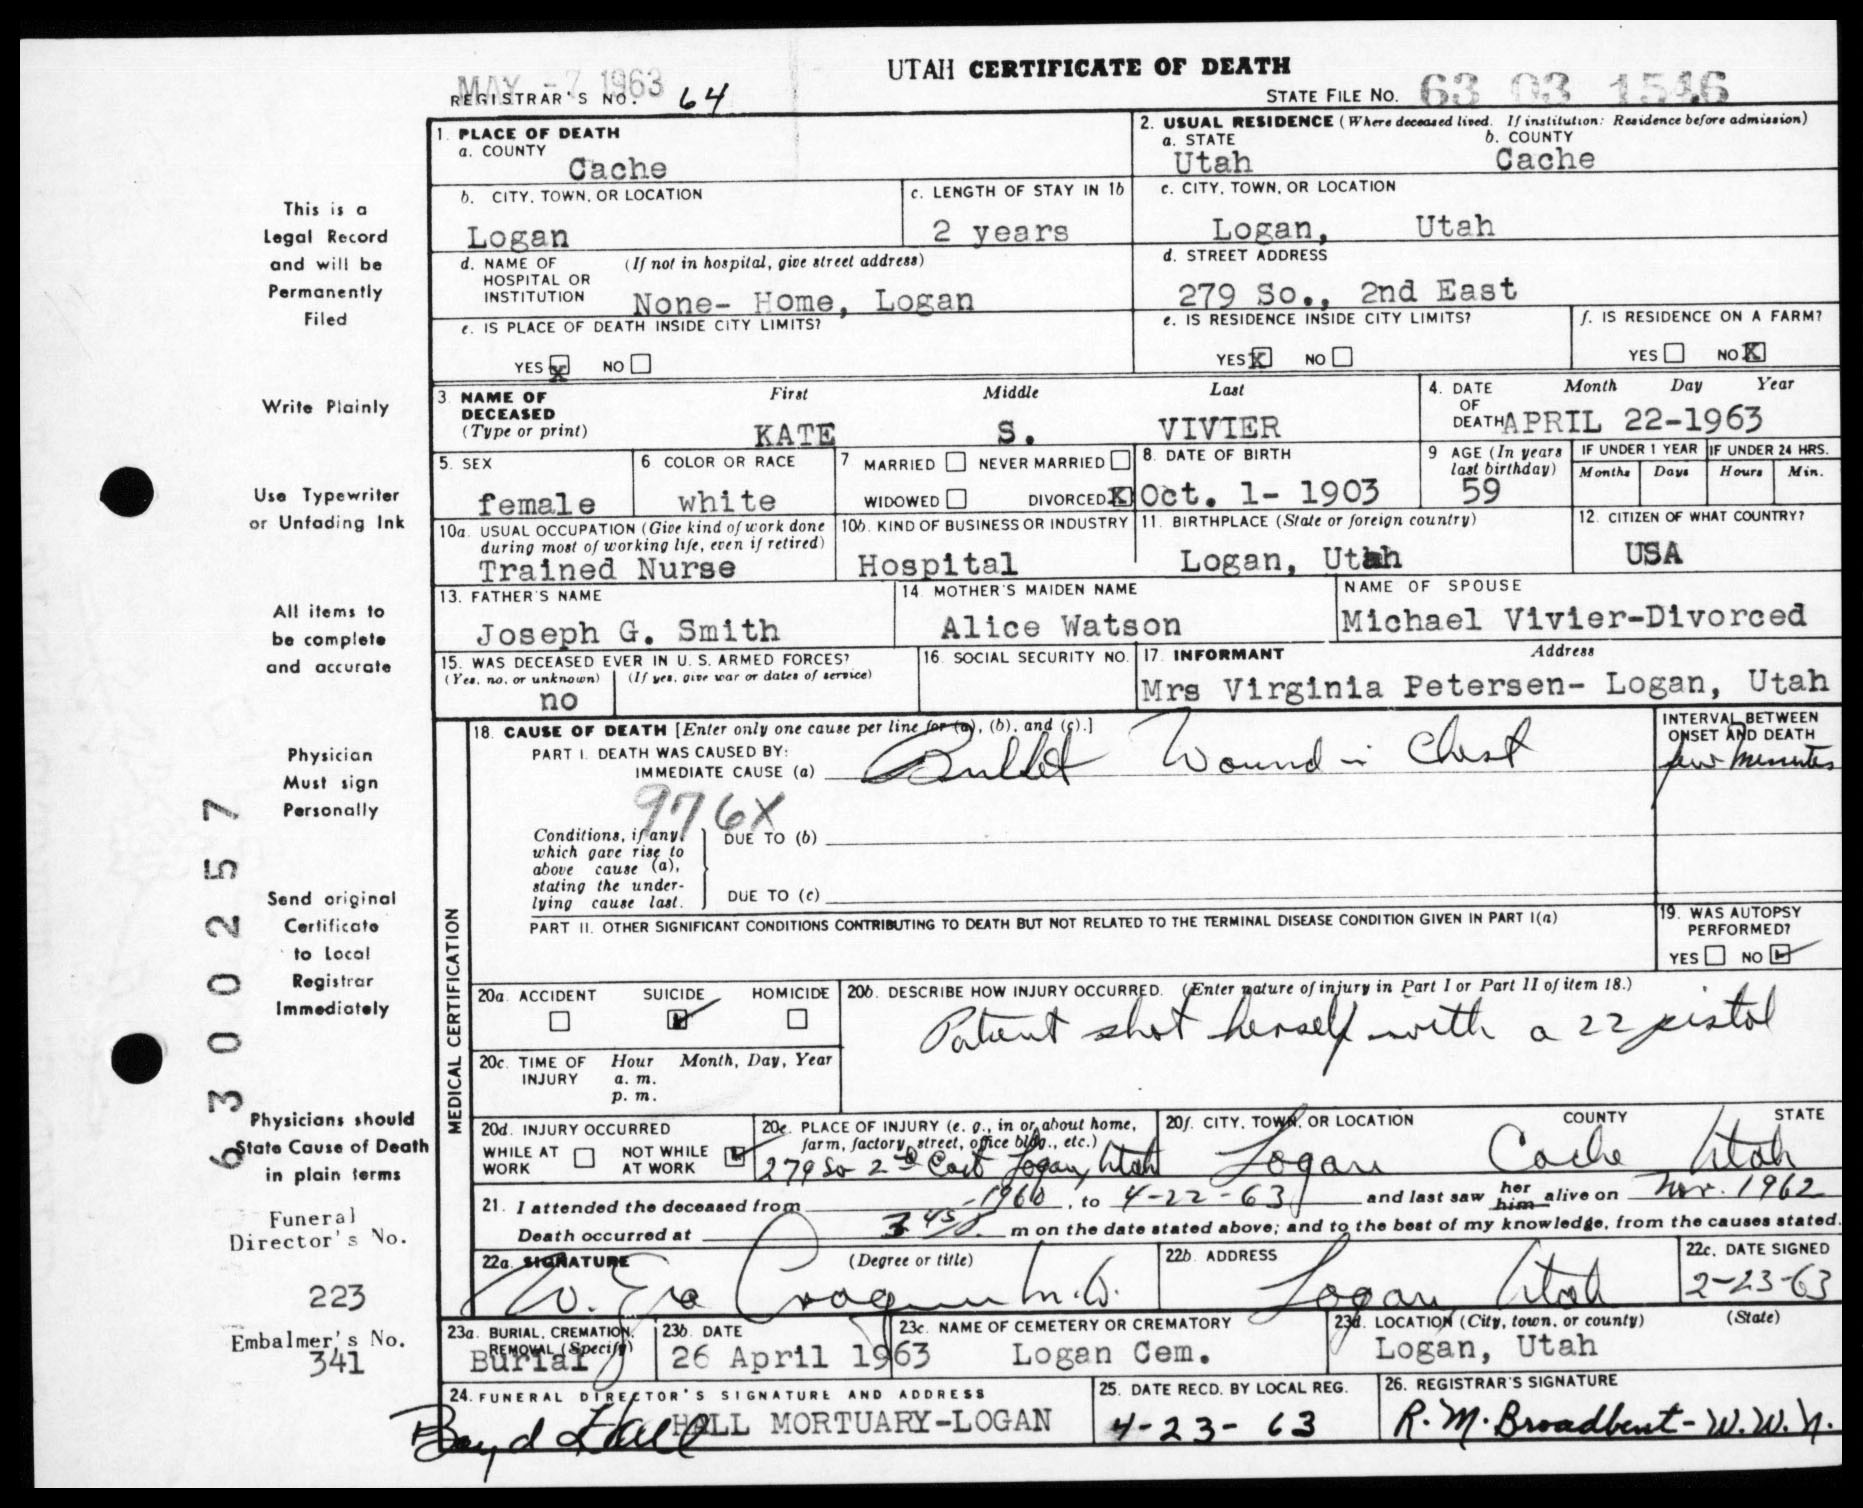 UTAH CERTIFICATE OF DEATH
MAY -7 1963
REGISTRAR'S NO. 64
STATE FILE NO. 63 03 1546
This is a
Legal Record
and will be
Permanently
Filed
Write Plainly
Use Typewriter
or Unfading Ink
All items to
be complete
and accurate
Physician
Must sign
Personally
Send original
Certificate
to Local
Registrar
Immediately
Physicians should
State Cause of Death
in plain terms
Funeral
Director's No.
223
Embalmer's No.
341
6300257
1. PLACE OF DEATH
a. COUNTY
Cache
2. USUAL RESIDENCE (Where deceased lived. If institution: Residence before admission)
a. STATE b. COUNTY
Utah Cache
b. CITY, TOWN, OR LOCATION
Logan
c. LENGTH OF STAY IN 1b
2 years
c. CITY, TOWN, OR LOCATION
Logan, Utah
d. NAME OF HOSPITAL OR INSTITUTION (If not in hospital, give street address)
None- Home, Logan
d. STREET ADDRESS
279 So., 2nd East
e. IS PLACE OF DEATH INSIDE CITY LIMITS?
YES X NO
e. IS RESIDENCE INSIDE CITY LIMITS?
YES X NO
f. IS RESIDENCE ON A FARM?
YES NO X
3. NAME OF DECEASED (Type or print)
First Middle Last
KATE S. VIVIER
4. DATE OF DEATH Month Day Year
APRIL 22-1963
5. SEX
female
6 COLOR OR RACE
white
7 MARRIED NEVER MARRIED
WIDOWED DIVORCED X
8. DATE OF BIRTH
Oct. 1- 1903
9 AGE (In years last birthday)
59
IF UNDER 1 YEAR
Months Days
IF UNDER 24 HRS.
Hours Min.
10a. USUAL OCCUPATION (Give kind of work done during most of working life, even if retired)
Trained Nurse
10b. KIND OF BUSINESS OR INDUSTRY
Hospital
11. BIRTHPLACE (State or foreign country)
Logan, Utah
12. CITIZEN OF WHAT COUNTRY?
USA
13. FATHER'S NAME
Joseph G. Smith
14. MOTHER'S MAIDEN NAME
Alice Watson
NAME OF SPOUSE
Michael Vivier-Divorced
15. WAS DECEASED EVER IN U. S. ARMED FORCES?
(Yes, no, or unknown) (If yes, give war or dates of service)
no
16. SOCIAL SECURITY NO.
17. INFORMANT Address
Mrs Virginia Petersen- Logan, Utah
MEDICAL CERTIFICATION
18. CAUSE OF DEATH [Enter only one cause per line for (a), (b), and (c).]
PART I. DEATH WAS CAUSED BY:
IMMEDIATE CAUSE (a) Bullet Wound in Chest
INTERVAL BETWEEN ONSET AND DEATH
few minutes
976X
Conditions, if any,
which gave rise to
above cause (a),
stating the under-
lying cause last.
DUE TO (b)
DUE TO (c)
PART II. OTHER SIGNIFICANT CONDITIONS CONTRIBUTING TO DEATH BUT NOT RELATED TO THE TERMINAL DISEASE CONDITION GIVEN IN PART I(a)
19. WAS AUTOPSY PERFORMED?
YES NO
20a. ACCIDENT SUICIDE HOMICIDE
20b. DESCRIBE HOW INJURY OCCURRED. (Enter nature of injury in Part I or Part II of item 18.)
Patient shot herself with a 22 pistol
20c. TIME OF INJURY Hour Month, Day, Year
a. m.
p. m.
20d. INJURY OCCURRED
WHILE AT WORK NOT WHILE AT WORK
20e. PLACE OF INJURY (e. g., in or about home, farm, factory, street, office bldg., etc.)
279 So 2nd East Logan, Utah
20f. CITY, TOWN, OR LOCATION COUNTY STATE
Logan Cache Utah
21. I attended the deceased from 1960, to 4-22-63 and last saw her him alive on Nov. 1962
Death occurred at 3 45 p. m on the date stated above; and to the best of my knowledge, from the causes stated.
22a. SIGNATURE (Degree or title)
W. Ezra Cragun M.D.
22b. ADDRESS
Logan Utah
22c. DATE SIGNED
2-23-63
23a. BURIAL, CREMATION, REMOVAL (Specify)
Burial
23b. DATE
26 April 1963
23c. NAME OF CEMETERY OR CREMATORY
Logan Cem.
23d. LOCATION (City, town, or county) (State)
Logan, Utah
24. FUNERAL DIRECTOR'S SIGNATURE AND ADDRESS
Boyd Hall HALL MORTUARY-LOGAN
25. DATE RECD. BY LOCAL REG.
4-23-63
26. REGISTRAR'S SIGNATURE
R. M. Broadbent - W. W. N.